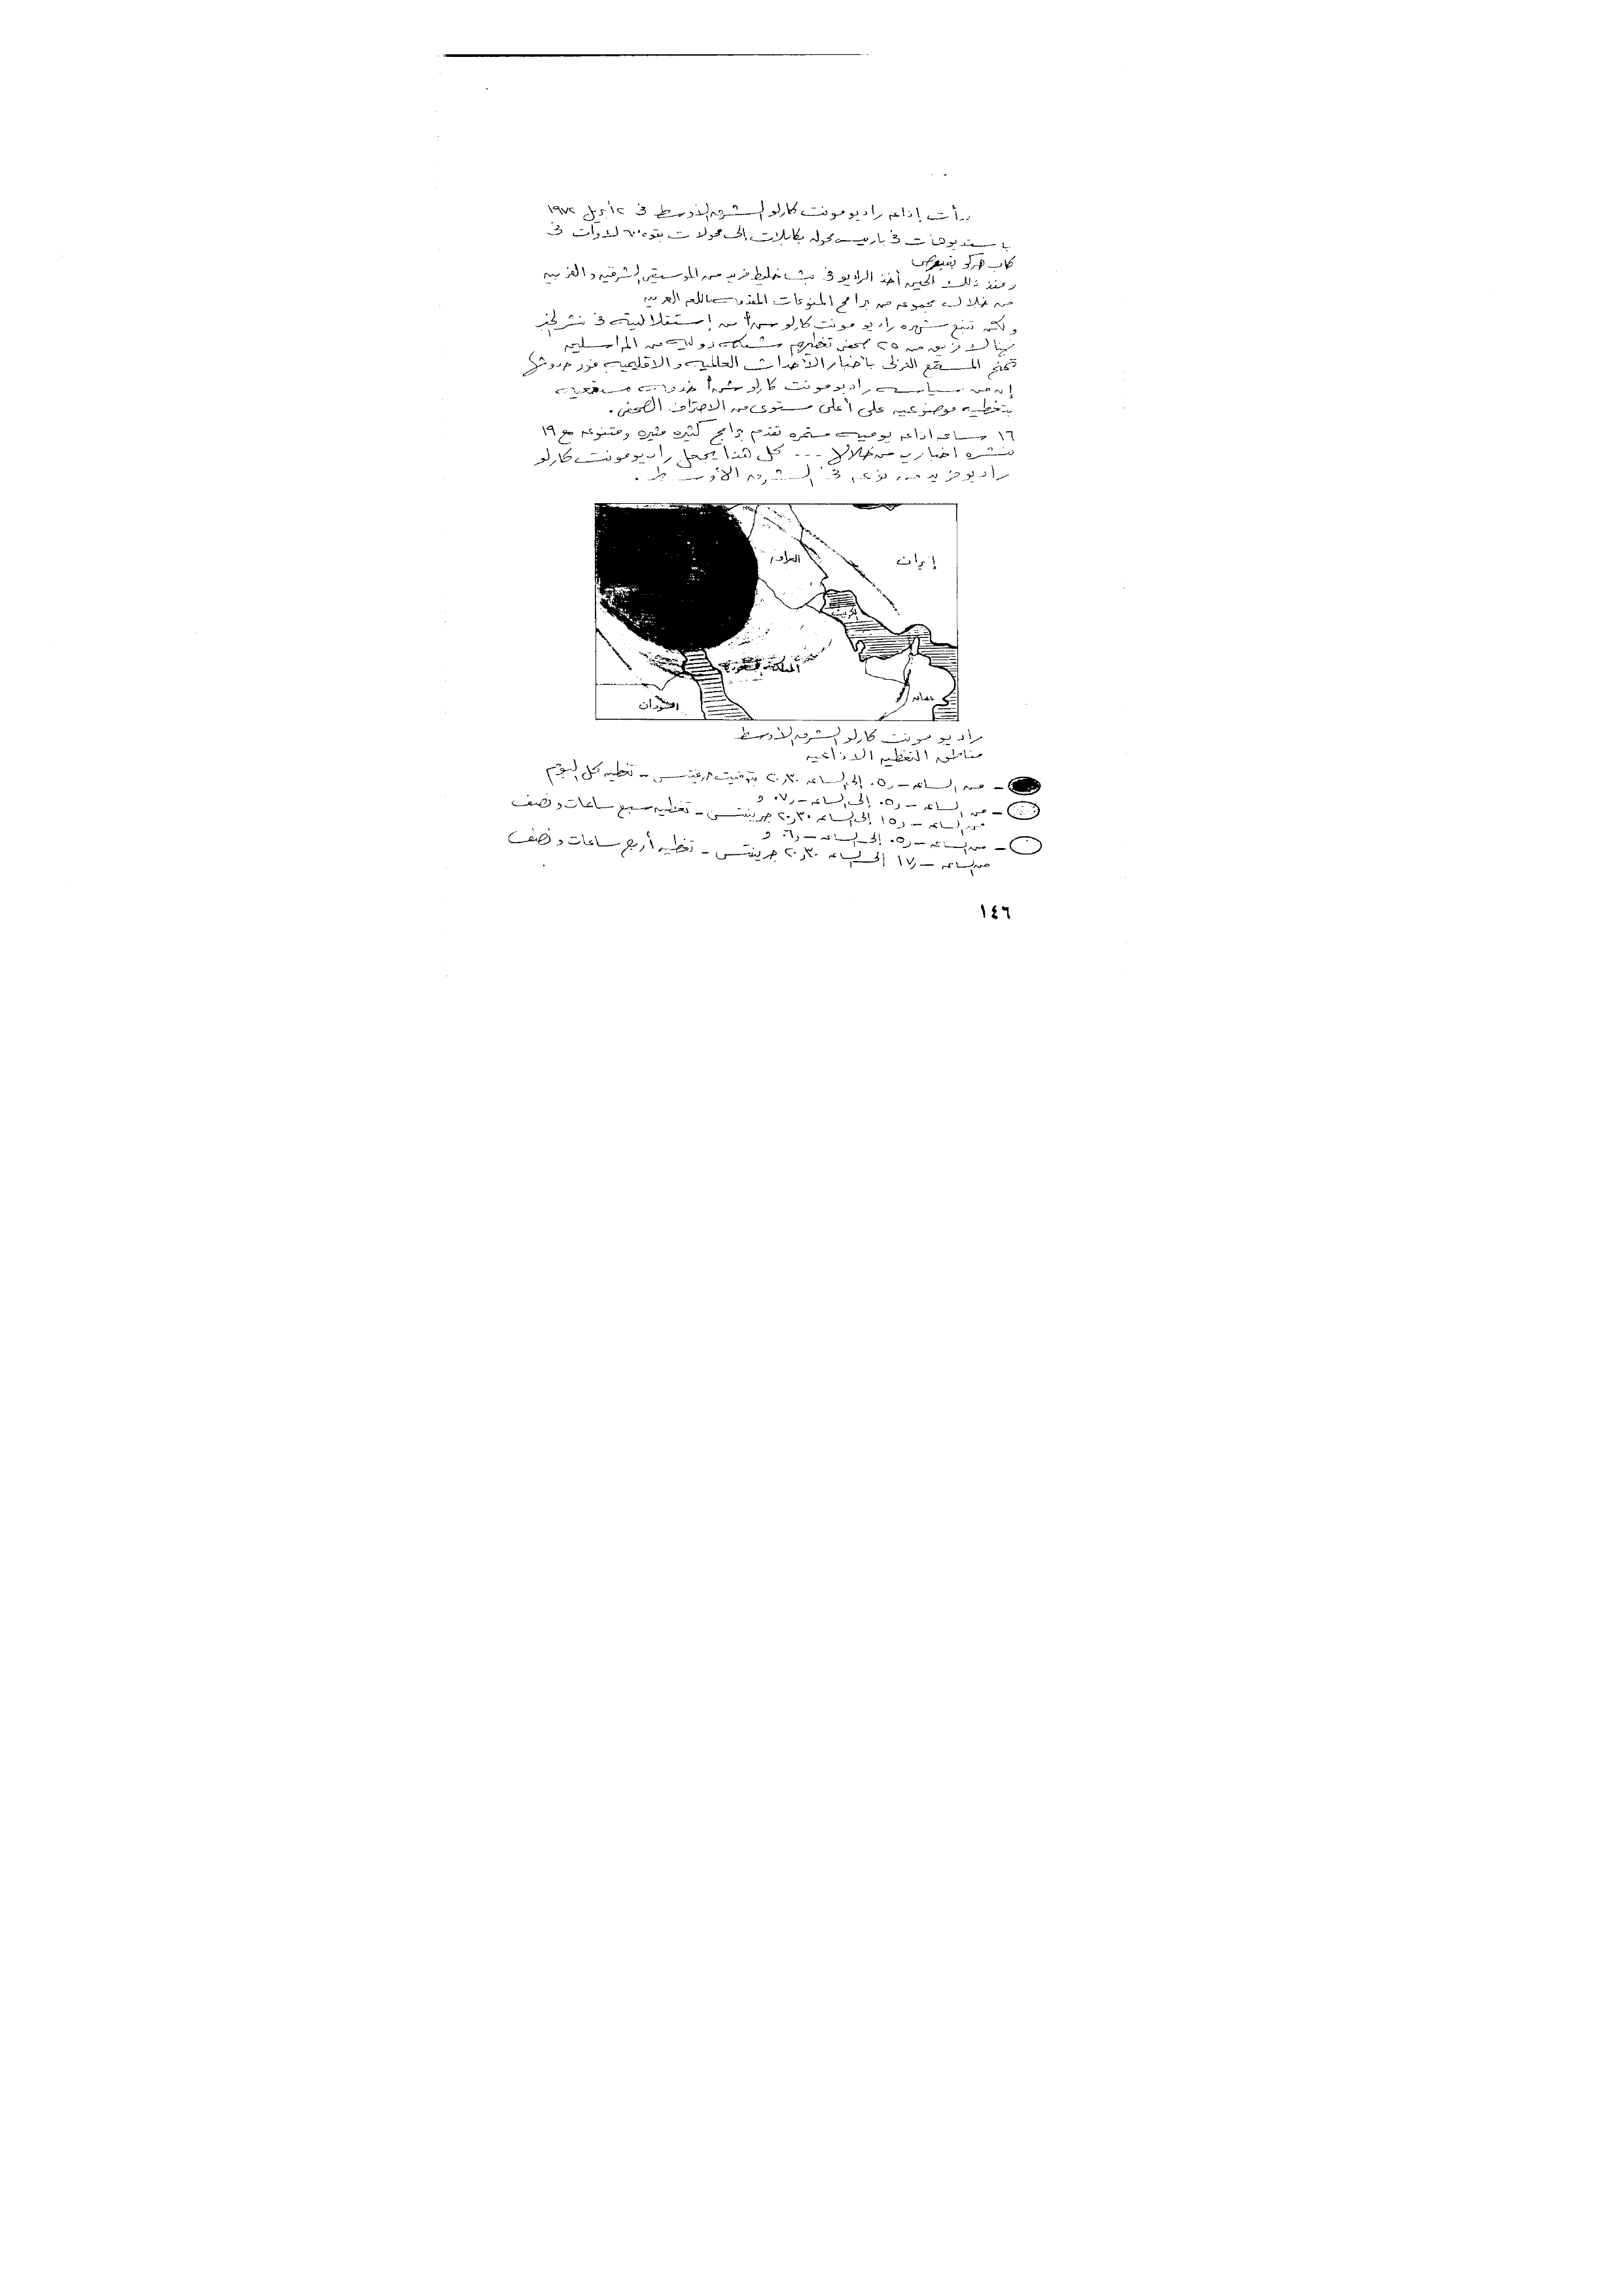 بدأت إذاعه راديو مونت كارلو الشرق الأوسط فى ٢ أبريل ١٩٧٢
باستديوهات فى باريس محوله بكابلات إلى محولات بقوه ٦٠٠ لاوات فى
كاب جركو بقبرص
ومنذ ذلك الحين أخذ الراديو فى بث خليط فريد من الموسيقى الشرقيه والغربيه
من خلال مجموعه من برامج المنوعات المقدمه باللغه العربيه
ولكن تنبع شهره راديو مونت كارلو من إستقلاليته فى نشر الخبر
فهنالك فريق من ٢٥ صحفى تغطيهم شبكه دوليه من المراسلين
تمنح المستمع العربى بأخبار الأحداث العالميه والاقليميه فور حدوثها
إن من سياسه راديو مونت كارلو خدمه مستمعيه
بتغطيه موضوعيه على أعلى مستوى من الاحتراف الصحفى .
١٦ ساعه اذاعه يوميه مستمره تقدم برامج كثيره مثيره ومتنوعه مع ١٩
نشره اخباريه من خلالها ... كل هذا يجعل راديو مونت كارلو
راديو فريد من نوعه فى الشرق الأوسط .
إيران
العراق
الكويت
المملكه السعوديه
عمان
السودان
راديو مونت كارلو الشرق الأوسط
مناطق التغطيه الاذاعيه
– من الساعه –ر٠٥ إلى الساعه ٣٠ر٢٠ بتوقيت جرينتش – تغطيه كل اليوم
– من الساعه –ر٠٥ إلى الساعه –ر٠٧ و
من الساعه –ر١٥ إلى الساعه ٣٠ر٢٠ جرينتش – تغطيه سبع ساعات ونصف
– من الساعه –ر٠٥ إلى الساعه –ر٠٦ و
من الساعه –ر١٧ إلى الساعه ٣٠ر٢٠ جرينتش – تغطيه أربع ساعات ونصف
١٤٦